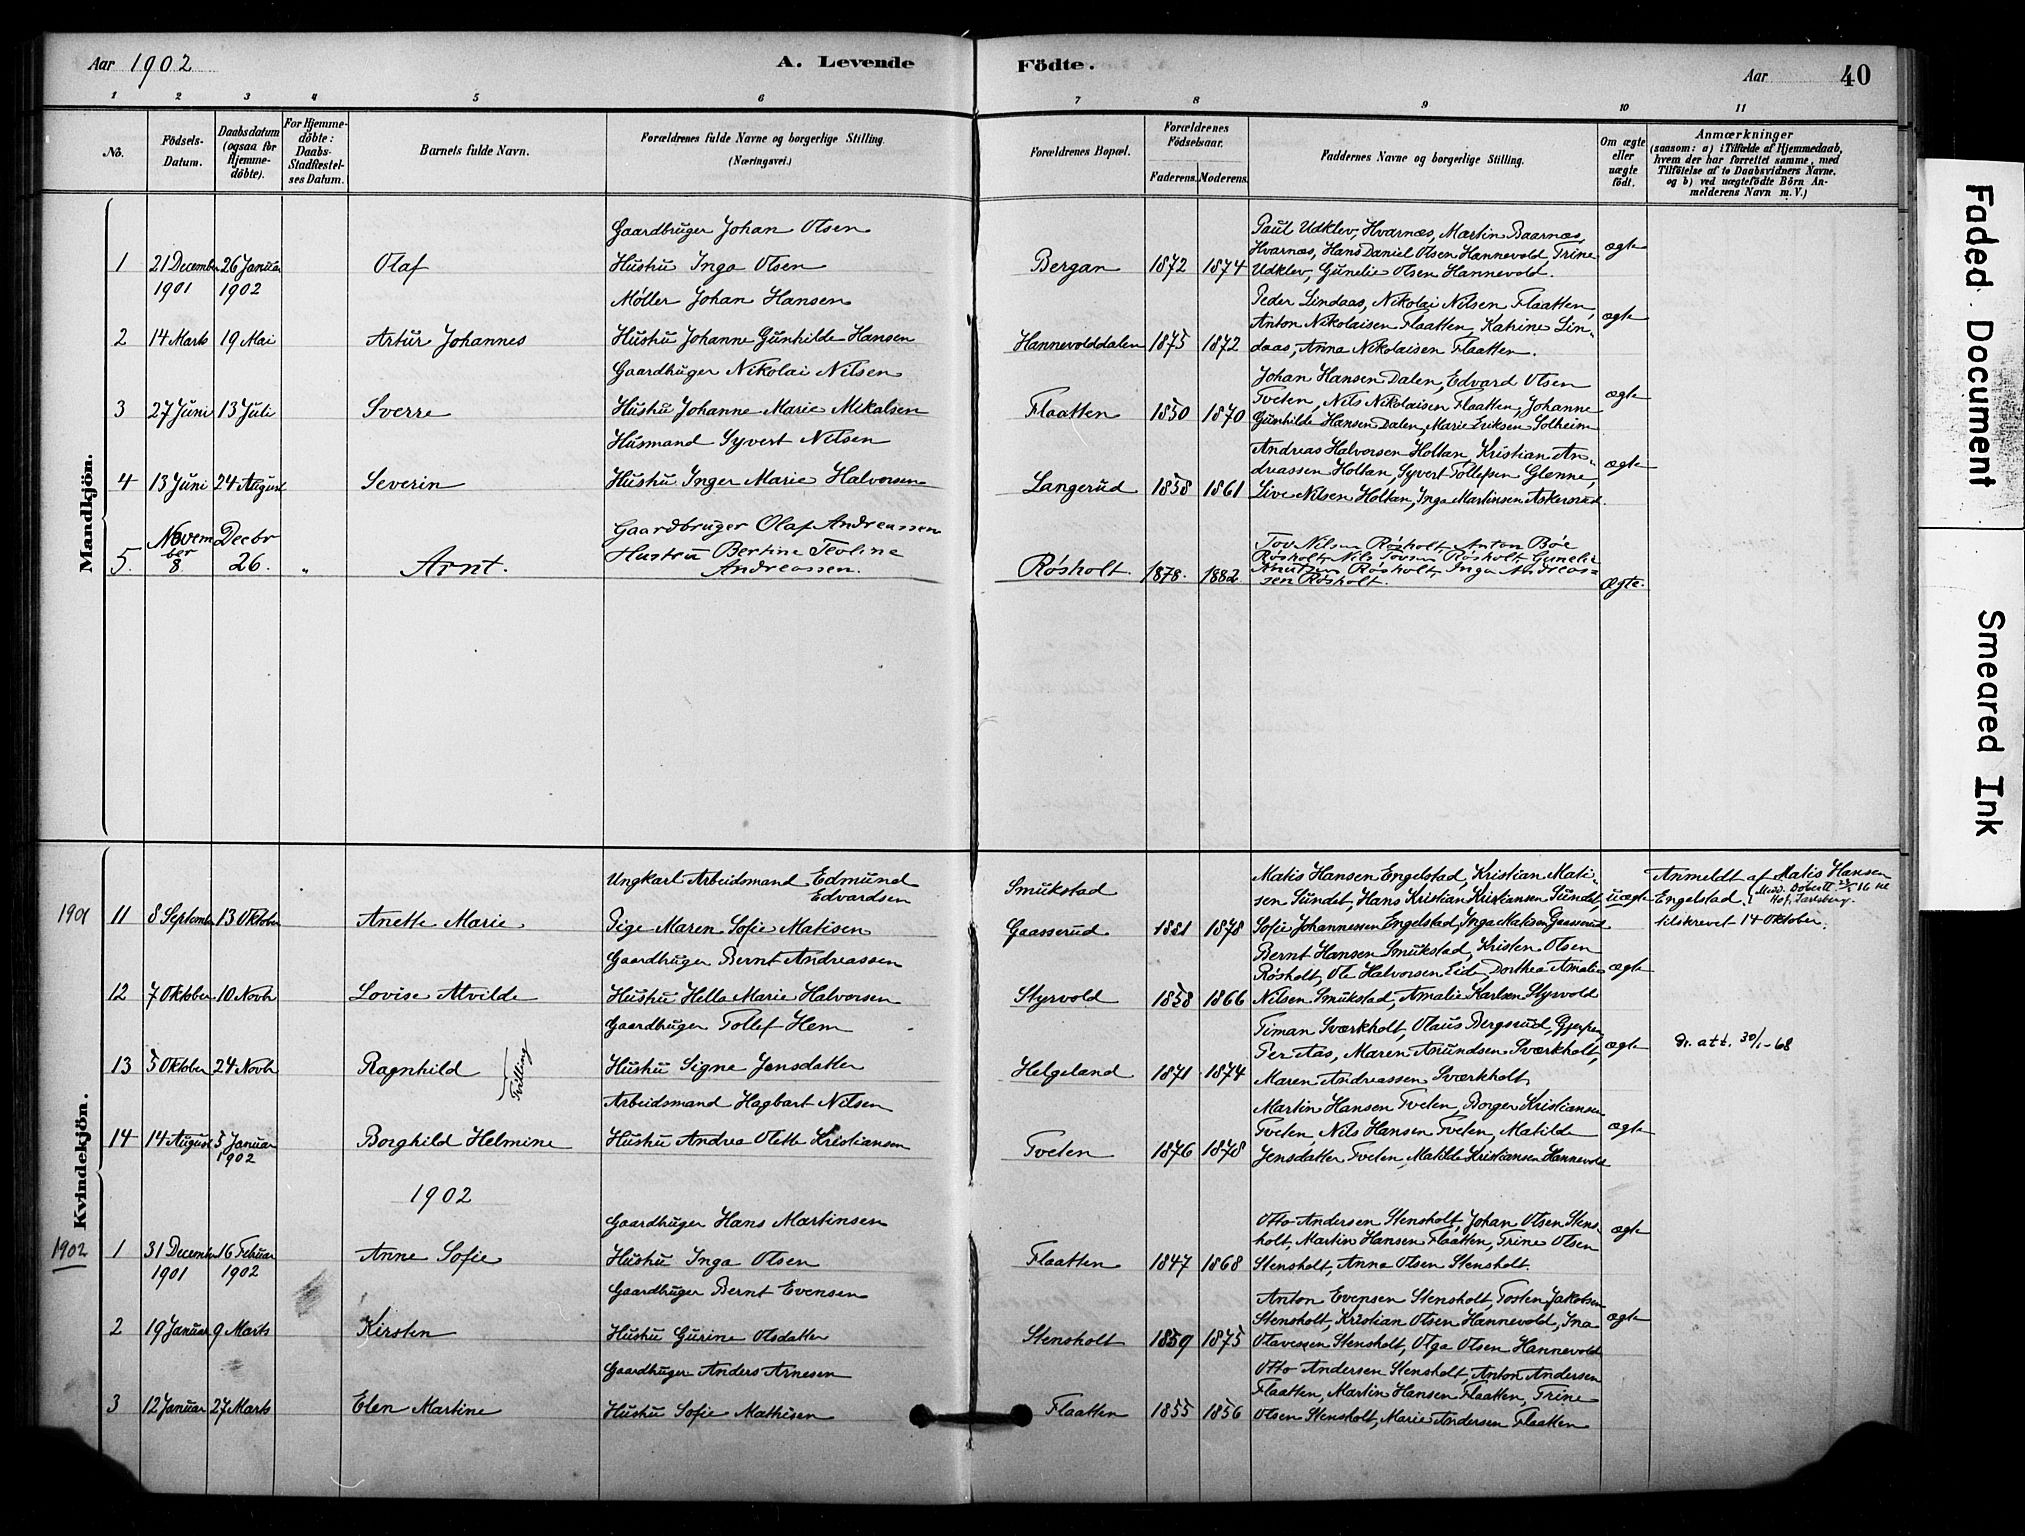 Aar 1902
A. Levende
Födte.
Aar
40
1 2 3 4 5 6 7 8 9 10 11
No.
Födsels-
Datum.
Daabsdatum
(ogsaa for
Hjemme-
döbte).
For Hjemme-
döbte:
Daabs-
Stadfæstel-
ses Datum.
Barnets fulde Navn.
Forældrenes fulde Navne og borgerlige Stilling.
(Næringsvei.)
Forældrenes Bopæl.
Forældrenes
Födselsaar.
Faderens. Moderens.
Faddernes Navne og borgerlige Stilling.
Om ægte
eller
uægte
födt.
Anmærkninger
(saasom: a) i Tilfælde af Hjemmedaab,
hvem der har forrettet samme, med
Tilföielse af to Daabsvidners Navne,
og b) ved uægtefödte Börn An-
melderens Navn m. V.)
Mandkjön.
1
21 December
1901
26 Januar
1902
Olaf
Gaardbruger Johan Olsen
Hustru Inga Olsen
Bergan
1872 1874
Paul Udklev, Hvarnæs, Martin Baarnæs,
Hvarnæs, Hans Daniel Olsen Hannevold, Trine
Udklev, Gunelie Olsen Hannevold.
ægte
2
14 Marts
19 Mai
Artur Johannes
Møller Johan Hansen
Hustru Johanne Gunhilde Hansen
Hannevolddalen
1875 1872
Peder Lindaas, Nikolai Nilsen Flaatten,
Anton Nikolaisen Flaatten, Katrine Lin-
daas, Anna Nikolaisen Flaatten.
ægte
3
27 Juni
13 Juli
Sverre
Gaardbruger Nikolai Nilsen
Hustru Johanne Marie Mikalsen
Flaatten
1850 1870
Johan Hansen Dalen, Edvard Olsen
Tveten, Nils Nikolaisen Flaatten, Johanne
Gunhilde Hansen Dalen, Marie Eriksen Solheim
ægte
4
13 Juni
24 August
Severin
Husmand Syvert Nilsen
Hustru Inger Marie Halvorsen
Langerud
1858 1861
Andreas Halvorsen Holtan, Kristian An-
dreassen Holtan, Syvert Tollefsen Glenne,
Live Nilsen Holtan, Inga Martinsen Askersrud.
ægte
5.
Novem
ber
8
Decbr
26.
"
Arnt.
Gaardbruger Olaf Andreassen
Hustru Bertine Teoline
Andreassen.
Røsholt
1878. 1882
Tov Nilsen Røsholt, Anton Bøe
Røsholt, Nils Tovsen Røsholt, Gunelie
Knutsen Røsholt, Inga Andreas-
sen Røsholt.
Ægte.
Kvindekjön.
1901
11
8 September
13 Oktober
Anette Marie
Ungkarl Arbeidsmand Edmund
Edvardsen
Pige Maren Sofie Matisen
Smukstad
Gaasserud
1881 1878
Matis Hansen Engelstad, Kristian Mati-
sen Sundet, Hans Kristian Kristiansen Sundet,
Sofie Johannessen Engelstad, Inga Matisen Gaasserud
uægte
Anmeldt af Matis Hansen
Engelstad.
tilskrevet 14 Oktober.
12
7 Oktober
10 Novbr
Lovise Alvilde
Gaardbruger Bernt Andreassen
Hustru Hella Marie Halvorsen
Styrvold
1858 1866
Bernt Hansen Smukstad, Kristen Olsen
Røsholt, Ole Halvorsen Eide, Dorthea Amalie
Nilsen Smukstad, Amalie Karlsen Styrvold
ægte
13
5 Oktober
24 Novbr
Ragnhild
Tvilling
Gaardbruger Tollef Hem
Hustru Signe Jensdatter
Helgeland
1871 1874
Timan Sværkholt, Olaus Bergsrud, Gjerpen,
Per Aas, Maren Amundsen Sværkholt,
Maren Andreassen Sværkholt
ægte
Dr. att. 30/1-68
14
14 August
5 Januar
1902
Borghild Helmine
Arbeidsmand Hagbart Nilsen
Hustru Andrea Olette Kristiansen
Tveten
1876 1878
Martin Hansen Tveten, Borger Kristiansen
Tveten, Nils Hansen Tveten, Matilde
Jensdatter Tveten, Matilde Kristiansen Hannevold
ægte
1902
1902
1
31 December
1901
16 Februar
1902
Anne Sofie
Gaardbruger Hans Martinsen
Hustru Inga Olsen
Flaatten
1847 1868
Otto Andersen Stensholt, Johan Olsen Stens-
holt, Martin Hansen Flaatten, Trine Olsen
Stensholt, Anna Olsen Stensholt.
ægte
2
19 Januar
9 Marts
Kirsten
Gaardbruger Bernt Evensen
Hustru Gurine Olsdatter
Stensholt
1859 1875
Anton Evensen Stensholt, Tosten Jakobsen
Stensholt, Kristian Olsen Hannevold, Ina
Olavesen Stensholt, Olga Olsen Hannevold
ægte
3
12 Januar
27 Marts
Elen Martine
Gaardbruger Anders Arnesen
Hustru Sofie Mathisen
Flaatten
1855 1856
Otto Andersen Stensholt, Anton Andersen
Flaatten, Martin Hansen Flaatten, Trine
Olsen Stensholt, Marie Andersen Flaatten
Faded Document
Smeared Ink